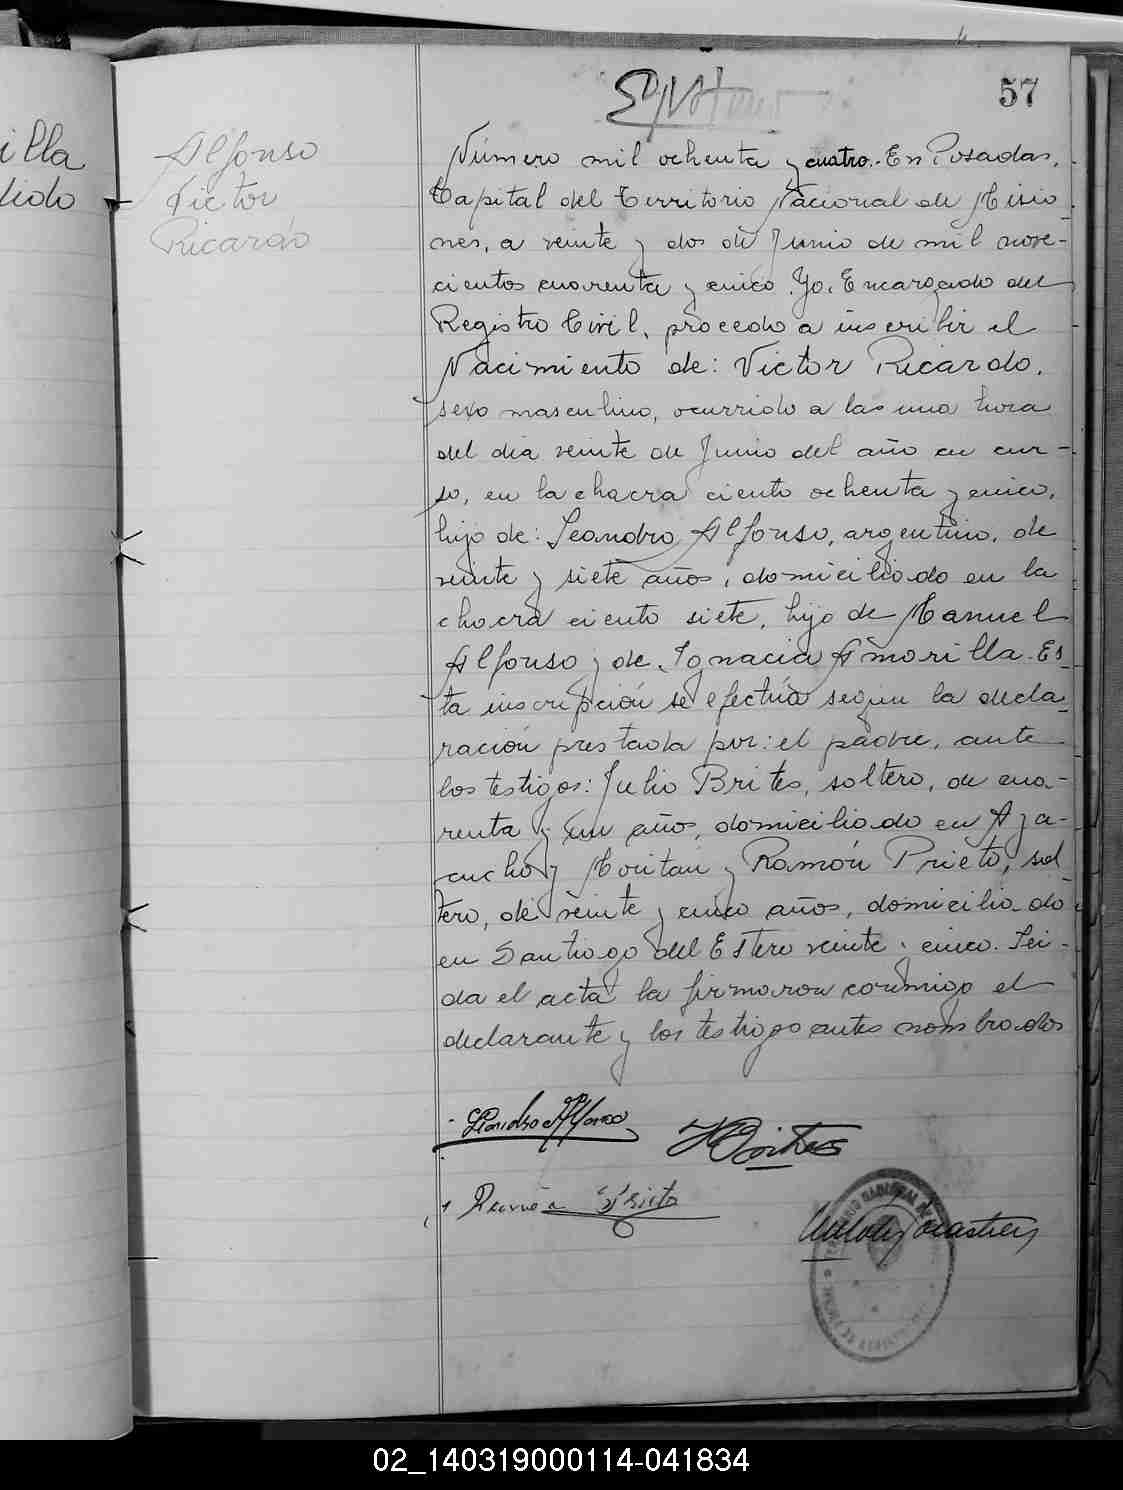 57
illa
dido
Alfonso
Victor
Ricardo
Número mil ochenta y cuatro.- En Posadas,
Capital del Territorio Nacional de Misio-
nes, a veinte y dos de Junio de mil nove-
cientos cuarenta y cinco. Yo, Encargado del
Registro Civil, procedo a inscribir el
Nacimiento de: Victor Ricardo,
sexo masculino, ocurrido a las una hora
del día veinte de Junio del año en cur-
so, en la chacra ciento ochenta y cinco,
hijo de: Leandro Alfonso, argentino, de
veinte y siete años, domiciliado en la
chacra ciento siete, hijo de Manuel
Alfonso y de Ignacia Amarilla. Es-
ta inscripción se efectúa según la decla-
ración prestada por: el padre, ante
los testigos: Julio Brites, soltero, de cua-
renta y un años, domiciliado en Aya-
cucho y Moritan y Ramón Prieto, sol-
tero, de veinte y cinco años, domiciliado
en Santiago del Estero veinte y cinco. Lei-
da el acta la firmaron conmigo el
declarante y los testigo antes nombrados
Leandro Alfonso
J Brites
Ramón Prieto
02_140319000114-041834